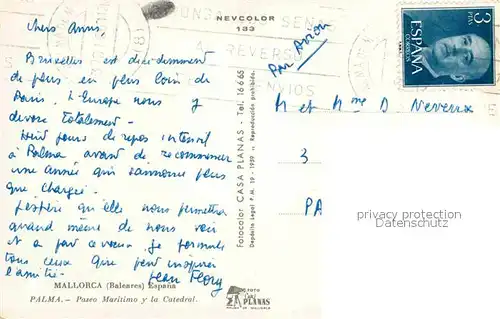 NEVCOLOR
133
3 PTA
CORREOS
ESPAÑA
Chers Amis,
Bruxelles est décidemment
de plus en plus loin de
Paris. L'Europe nous y
dévore totalement.
Huit jours de repos intensif
à Palma avant de recommencer
une année qui s'annonce plus
que chargée.
J'espère qu'elle nous permettra
quand même de nous voir
Et à part ce vœux, je formule
tous ceux que peut inspirer
l'amitié.
Jean Flory
Par Avion
M et Mme D Neveux
3
PA
Fotocolor CASA PLANAS - Tel. 16665
Depósito Legal P.M. 19 - 1959 Reproducción prohibida.
MALLORCA (Baleares) España
PALMA. - Paseo Marítimo y la Catedral.
FOTO
Casa
PLANAS
DE MALLORCA
privacy protection
Datenschutz